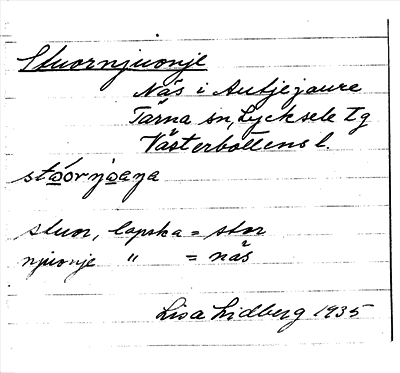 Stuornjuonje
Näs i Autjejaure
Tärna sn, Lycksele Lg
Västerbottens l.
støórnjøaŋa
stuor, lapska = stor
njuonje " = näs
Lisa Lidberg 1935